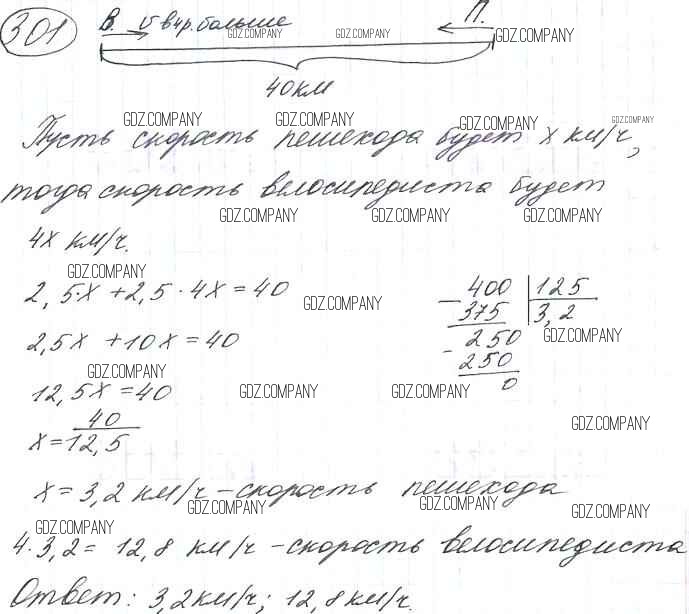 301
В. → v в 4 р. больше ← П.
GDZ.COMPANY GDZ.COMPANY GDZ.COMPANY
40 км
GDZ.COMPANY GDZ.COMPANY GDZ.COMPANY GDZ.COMPANY
Пусть скорость пешехода будет x км/ч,
тогда скорость велосипедиста будет
GDZ.COMPANY GDZ.COMPANY GDZ.COMPANY
4x км/ч.
GDZ.COMPANY
2,5·x + 2,5·4x = 40
400 | 125
GDZ.COMPANY
- 375 | 3,2
2,5x + 10x = 40
- 250
GDZ.COMPANY
250
GDZ.COMPANY
0
12,5x = 40
GDZ.COMPANY GDZ.COMPANY
40
GDZ.COMPANY
x = 12,5
x = 3,2 км/ч – скорость пешехода
GDZ.COMPANY GDZ.COMPANY GDZ.COMPANY
GDZ.COMPANY
4·3,2 = 12,8 км/ч – скорость велосипедиста
Ответ: 3,2 км/ч; 12,8 км/ч.